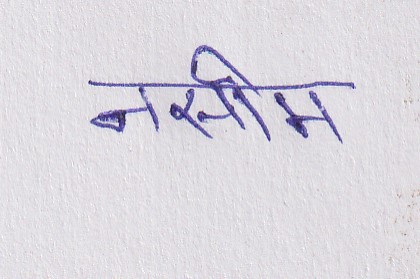 नसीम